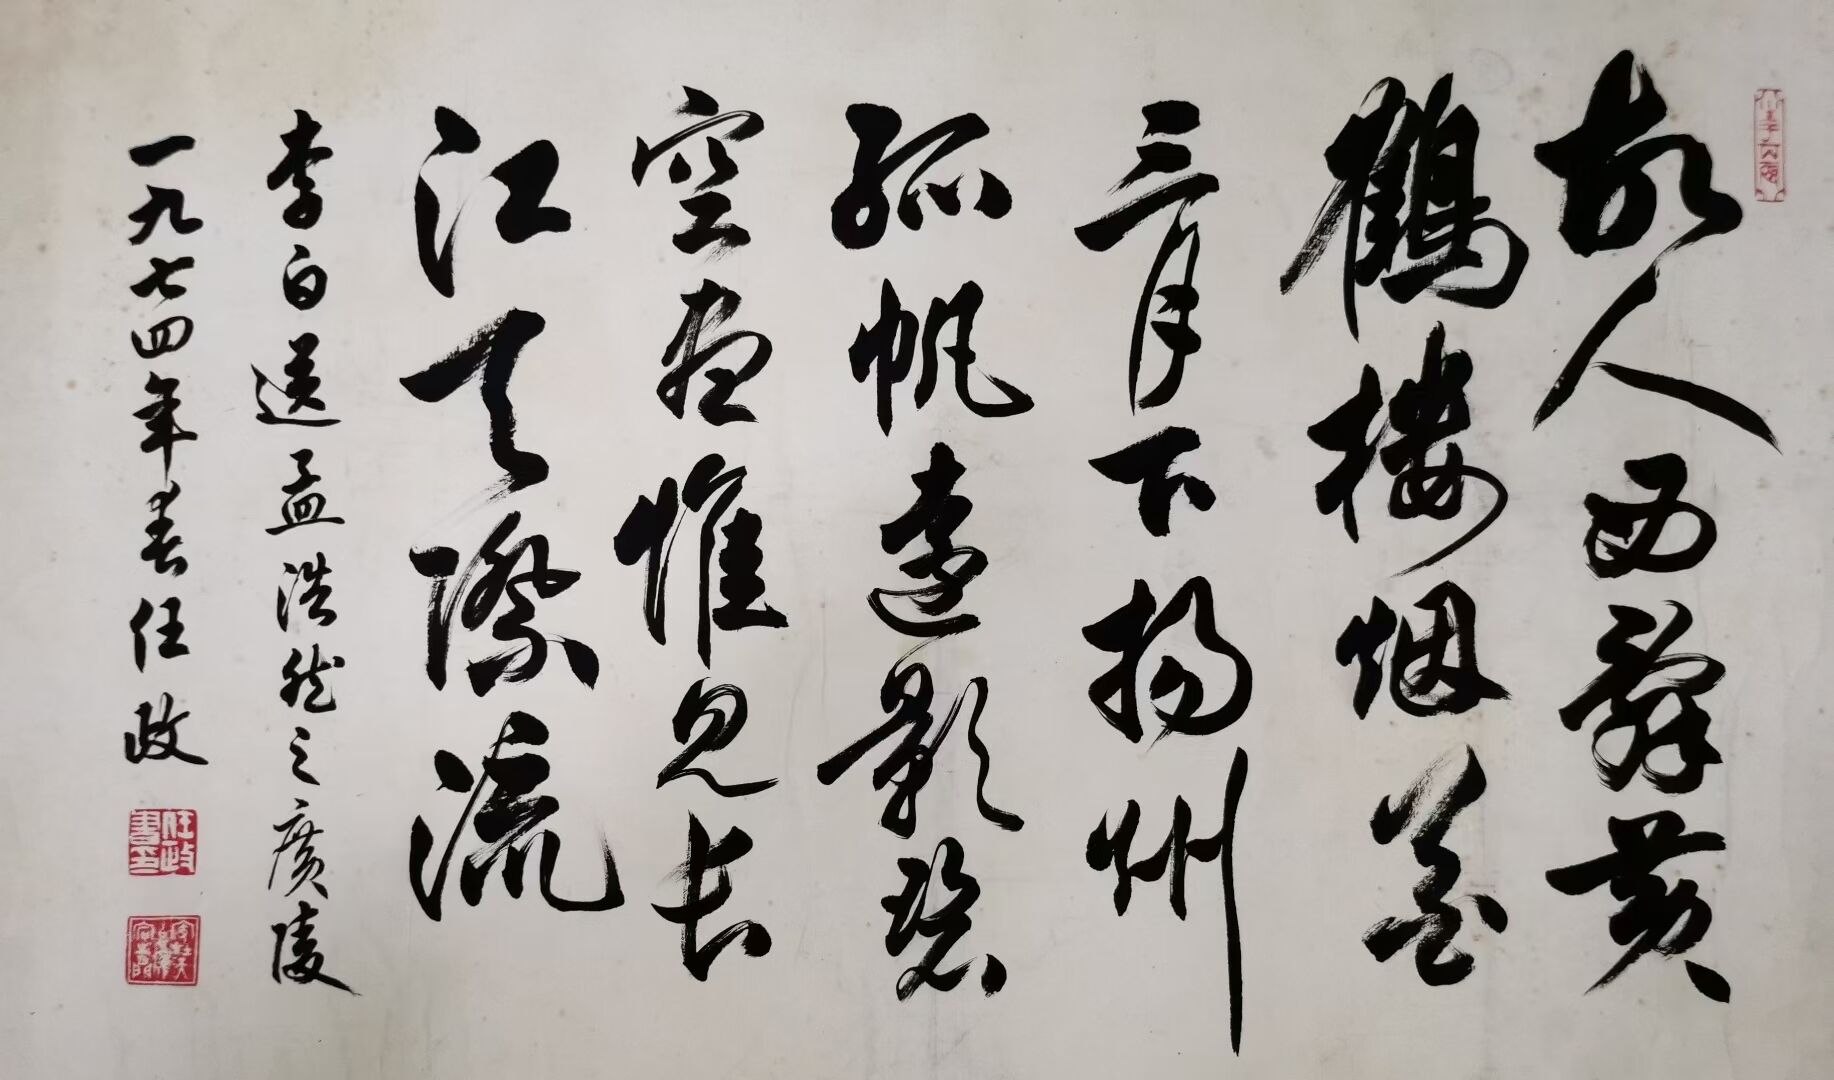 故人西辞黄
鹤楼烟花
三月下扬州
孤帆远影碧
空尽惟见长
江天际流
李白送孟浩然之广陵
一九七四年春任政
任政书印